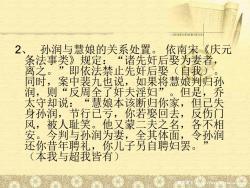 2、 孙润与慧娘的关系处置。依南宋《庆元
条法事类》规定：“诸先奸后娶为妻者，
离之。”即依法禁止先奸后娶（自我）。
同时，案中裴九也说，如果将慧娘判归孙
润，则“反周全了奸夫淫妇”。但是，乔
太守却说：“慧娘本该断归你家，但已失
身孙润，节行已亏，你若娶回去，反伤门
风，被人耻笑。他又蒙二夫之名，各不相
安。今判与孙润为妻，全其体面，令孙润
还你昔年聘礼，你儿子另自聘妇罢。”
（本我与超我皆有）